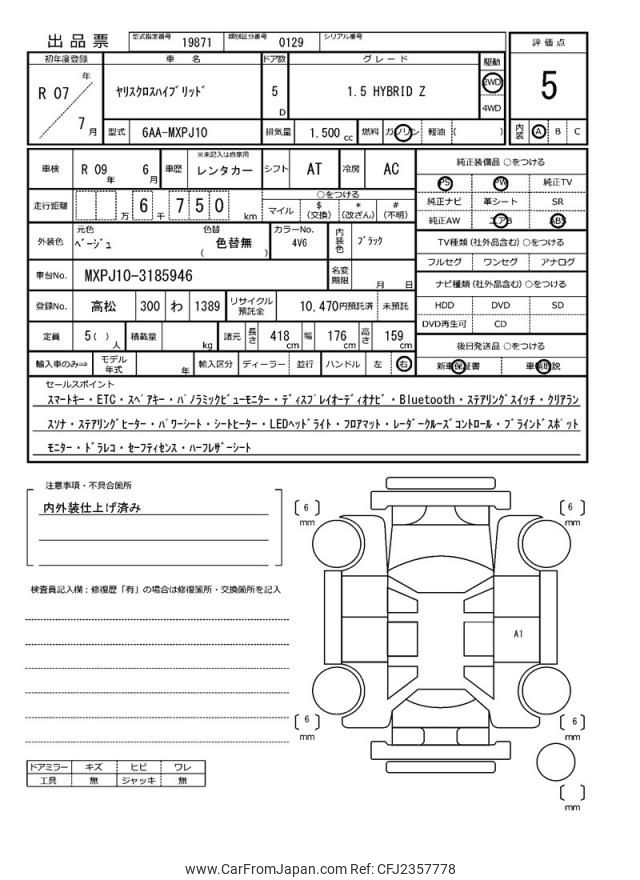 出品票 型式指定番号 19871 類別区分番号 0129 シリアル番号
評価点
5
内装 A B C
初年度登録 車名 ドア数 グレード 駆動
R 07 年 7 月 ヤリスクロスハイブリッド 5 D 1.5 HYBRID Z 2WD 4WD
型式 6AA-MXPJ10 排気量 1.500 cc 燃料 ガソリン 軽油 ( )
車検 R 09 年 6 月 車歴 ※未記入は自家用 レンタカー シフト AT 冷房 AC
走行距離 万 6 千 7 5 0 km ○をつける マイル $(交換) *(改ざん) #(不明)
外装色 元色 ベージュ 色替 色替無 ( ) カラーNo. 4V6 内装色 ブラック
車台No. MXPJ10-3185946 名変期限 月 日
登録No. 高松 300 わ 1389 リサイクル預託金 10.470円預託済 未預託
定員 5( ) 人 積載量 kg 諸元 長さ 418 cm 幅 176 cm 高さ 159 cm
輸入車のみ⇒ モデル年式 年 輸入区分 ディーラー 並行 ハンドル 左 右
純正装備品 ○をつける
PS PW 純正TV
純正ナビ 革シート SR
純正AW エアB ABS
TV種類(社外品含む) ○をつける
フルセグ ワンセグ アナログ
ナビ種類(社外品含む) ○をつける
HDD DVD SD
DVD再生可 CD
後日発送品 ○をつける
新車保証書 車輌取説
セールスポイント
スマートキー・ETC・スペアキー・パノラミックビューモニター・ディスプレイオーディオナビ・Bluetooth・ステアリングスイッチ・クリアラン
スソナ・ステアリングヒーター・パワーシート・シートヒーター・LEDヘッドライト・フロアマット・レーダークルーズコントロール・ブラインドスポット
モニター・ドラレコ・セーフティセンス・ハーフレザーシート
注意事項・不具合箇所
内外装仕上げ済み
検査員記入欄:修復歴「有」の場合は修復箇所・交換箇所を記入
ドアミラー キズ ヒビ ワレ
工具 無 ジャッキ 無
[ 6 ] mm
[ 6 ] mm
A1
[ 6 ] mm
[ 6 ] mm
[ ] mm
www.CarFromJapan.com Ref: CFJ2357778